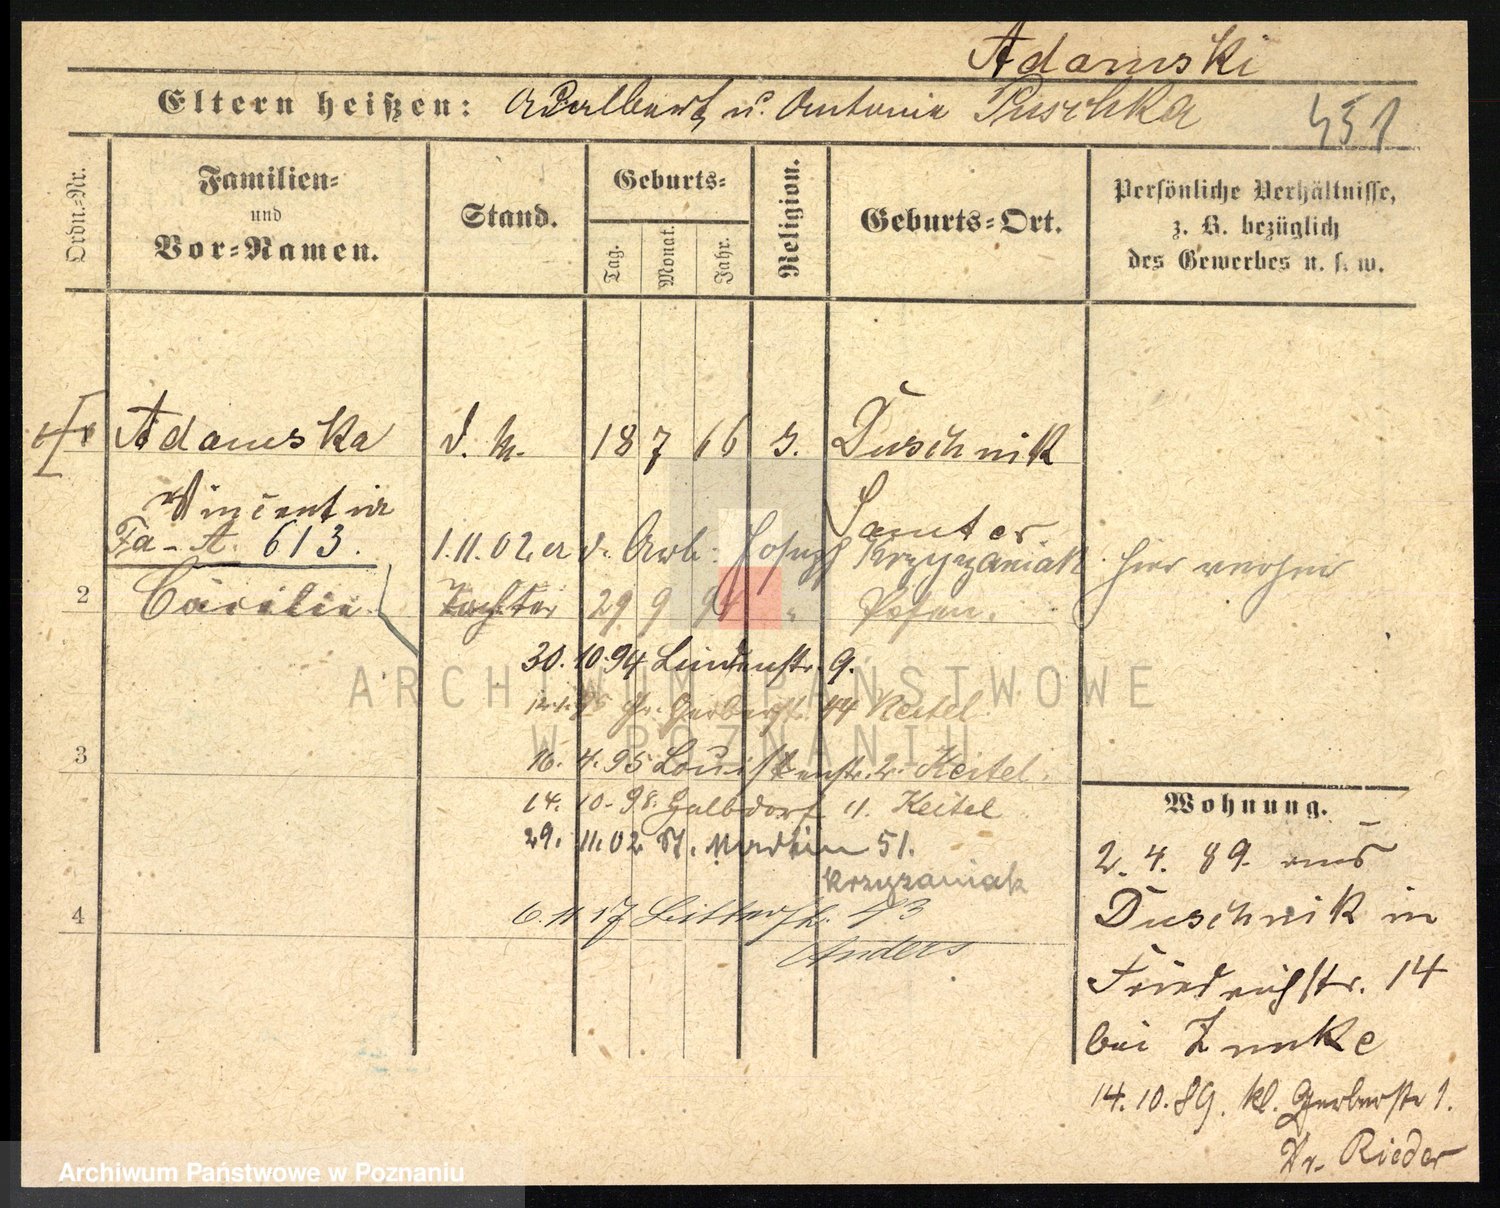 Adamski
Eltern heißen: Adalbert u. Antonie Puschka
451
Ordn.-Nr.
Familien-
und
Vor-Namen.
Stand.
Geburts-
Tag.
Monat.
Jahr.
Religion.
Geburts-Ort.
Persönliche Verhältnisse,
z. B. bezüglich
des Gewerbes u. s. w.
Adamska d. M. 18 7 66 Duschnik
Vincentia Samter
Fa-A. 613. 1.11.02 d. Arb. Joseph Krzyzaniak hier
2 Cäcilie Tochter 29 9 94 " Posen.
30.10.94 Lindenstr. 9.
Gr. Gerberstr. 44 Keitel
3 16. 4. 95 Louisenstr. 2. Keitel.
14. 10. 98. Halbdorf 11. Keitel
29. 11. 02 St. Martin 51.
Krzyzaniak
4 6.11.17 Bitterstr.
Anders
Wohnung.
2. 4. 89. aus
Duschnik in
Friedrichstr. 14
bei
14. 10. 89. kl. Gerberstr 1.
Rieder
ARCHIWUM PAŃSTWOWE
W POZNANIU
Archiwum Państwowe w Poznaniu